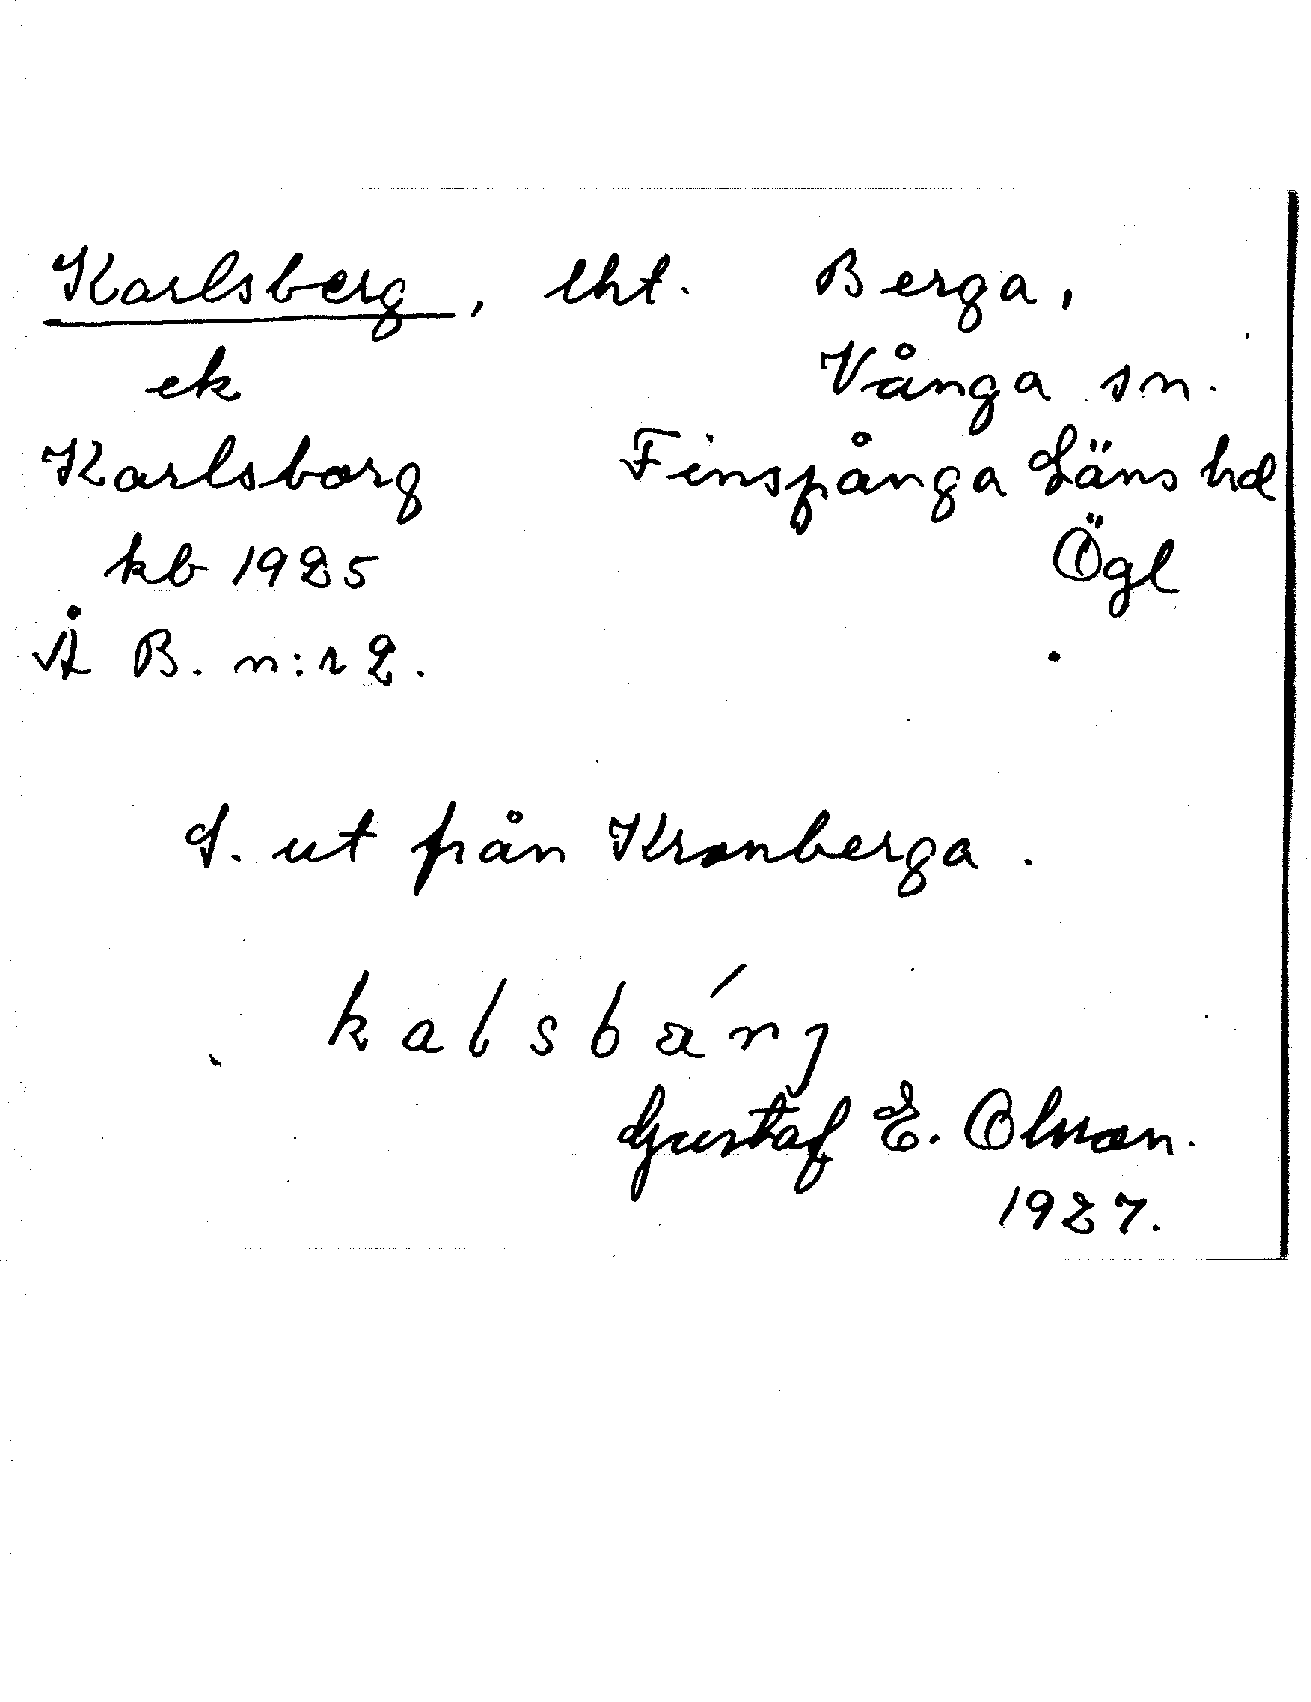 Karlsberg, lht. Berga,
ek Vånga sn.
Karlsborg Finspånga Läns hd
kb 1925 Ögl
Å B. n:r 2.
L. ut från Kronberga.
kalsbárj
Gustaf E. Olsson.
1927.